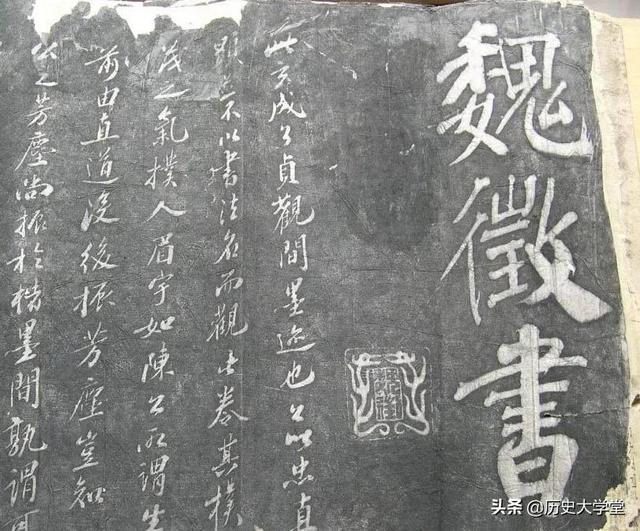 魏徵書
此玄成公貞觀間墨迹也公以忠貞
顯並不以書法名而觀此卷其樸
茂之氣撲人眉宇如陳公所謂生
前由直道沒後振芳塵豈知
公之芳塵尚振於楮墨間孰謂可
头条 @历史大学堂